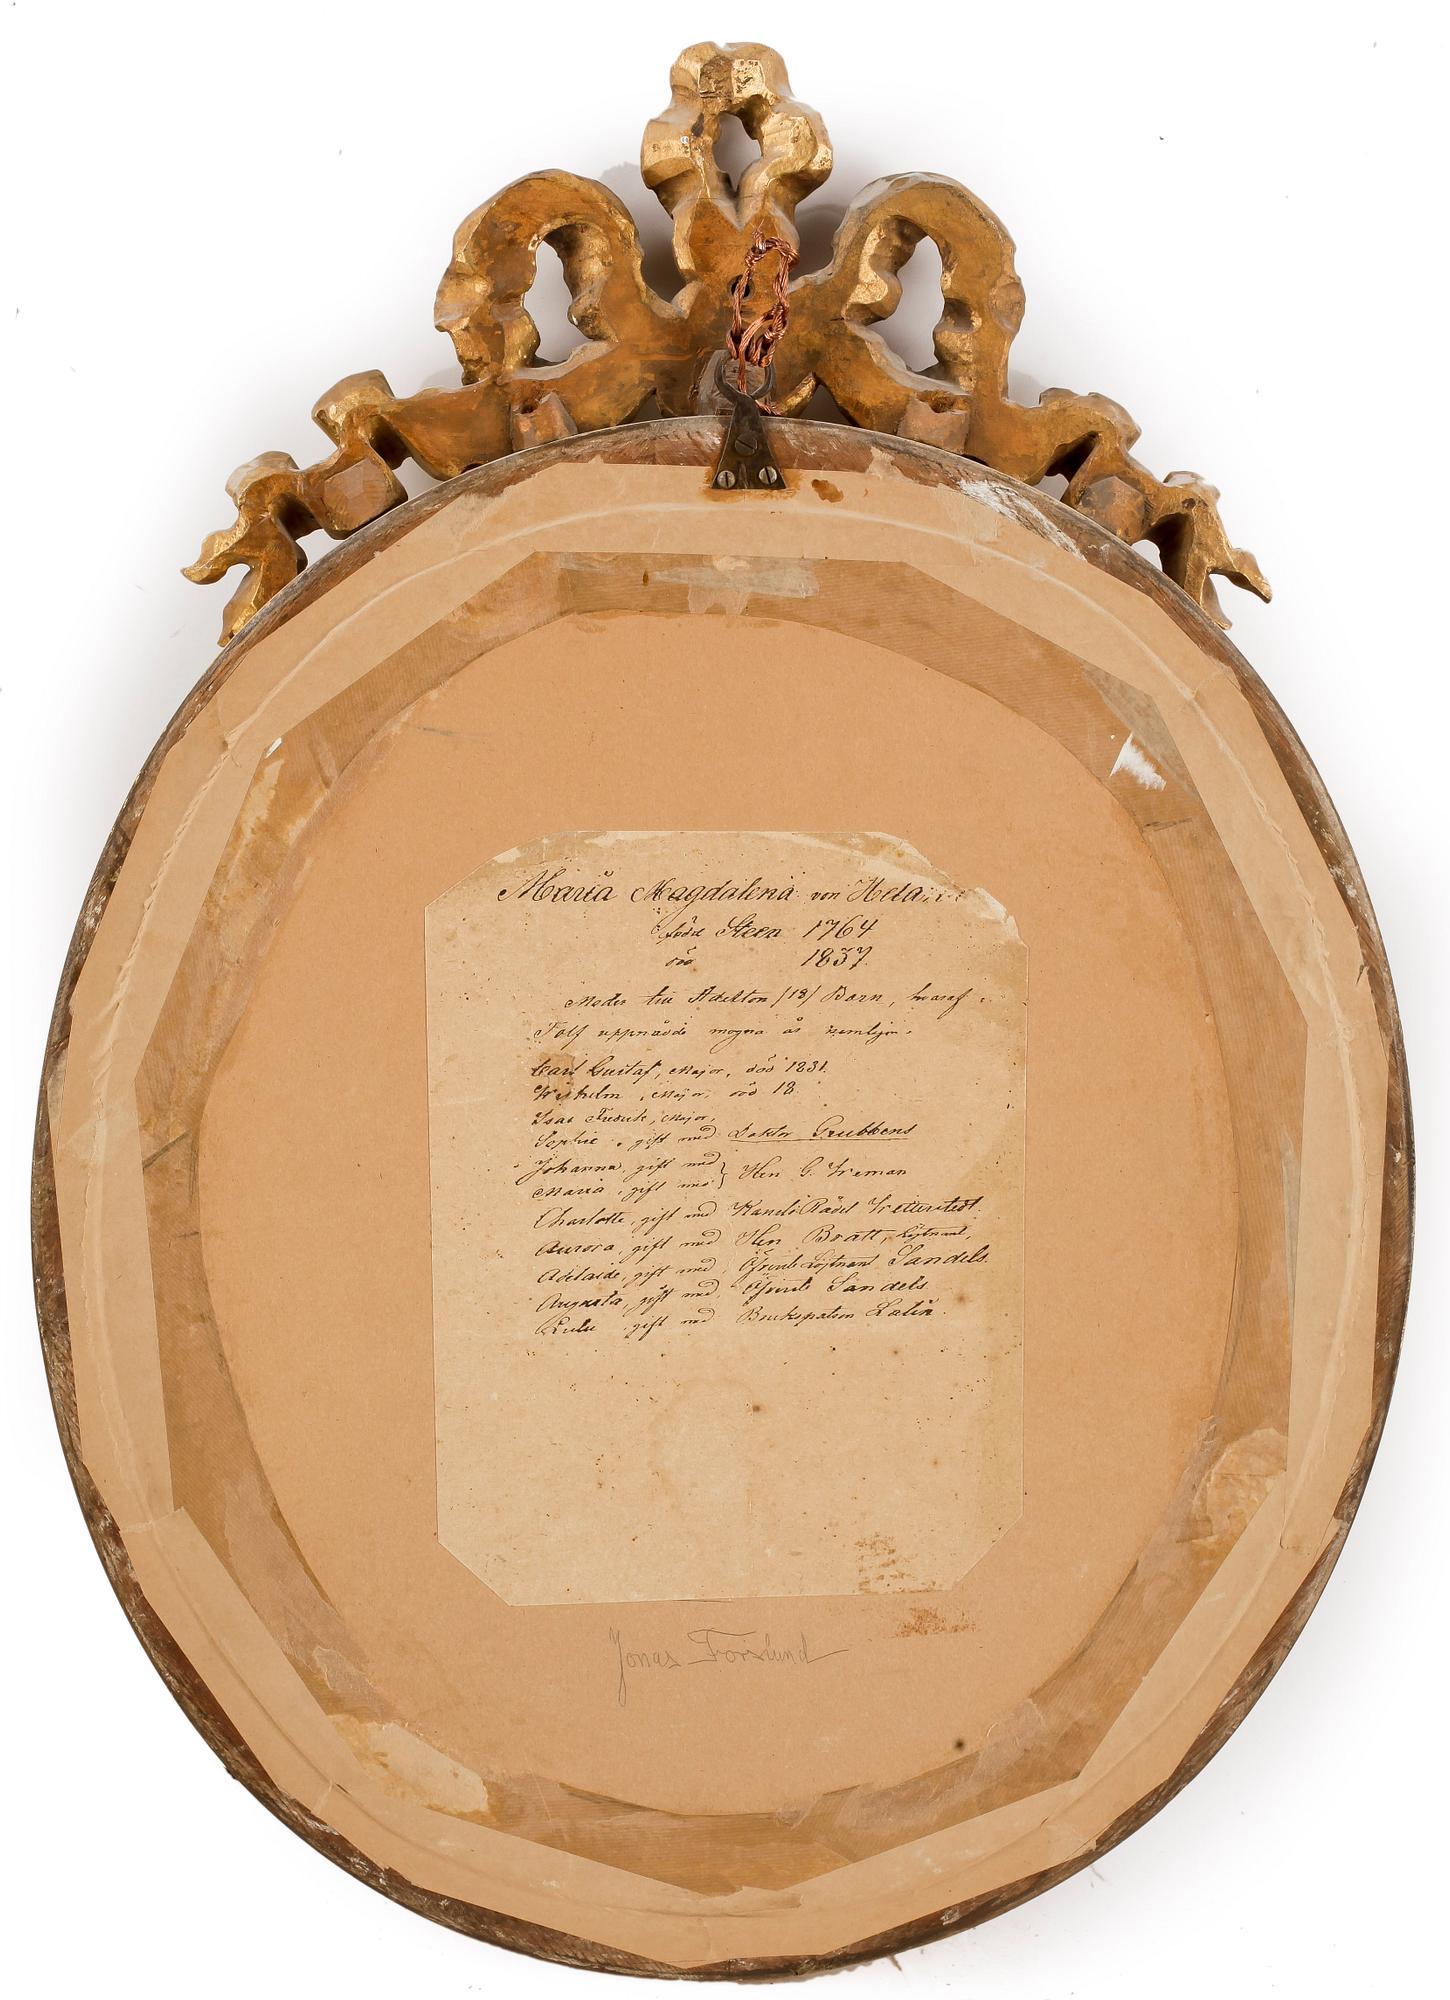 Maria Magdalena von Hela
född Steen 1764
död 1837
Moder till Adertton /18/ Barn, hvaraf
Tolf uppnådde mogna år nemligen
Carl Gustaf, Major, död 1831.
Wilhelm, Major, död 18
Isac Fredrik, Major,
Sophie, gift med Doktor Grubbens
Johanna, gift med
Maria, gift med } Herr G. Ireman
Charlotte, gift med Kansli Rådet Wetterstedt.
Aurora, gift med Herr Bratt, Löjtnant,
Adelaide, gift med Öfverste Löjtnant Sandels.
Augusta, gift med Öfverste Sandels
gift med Brukspatron
Jonas Forslund